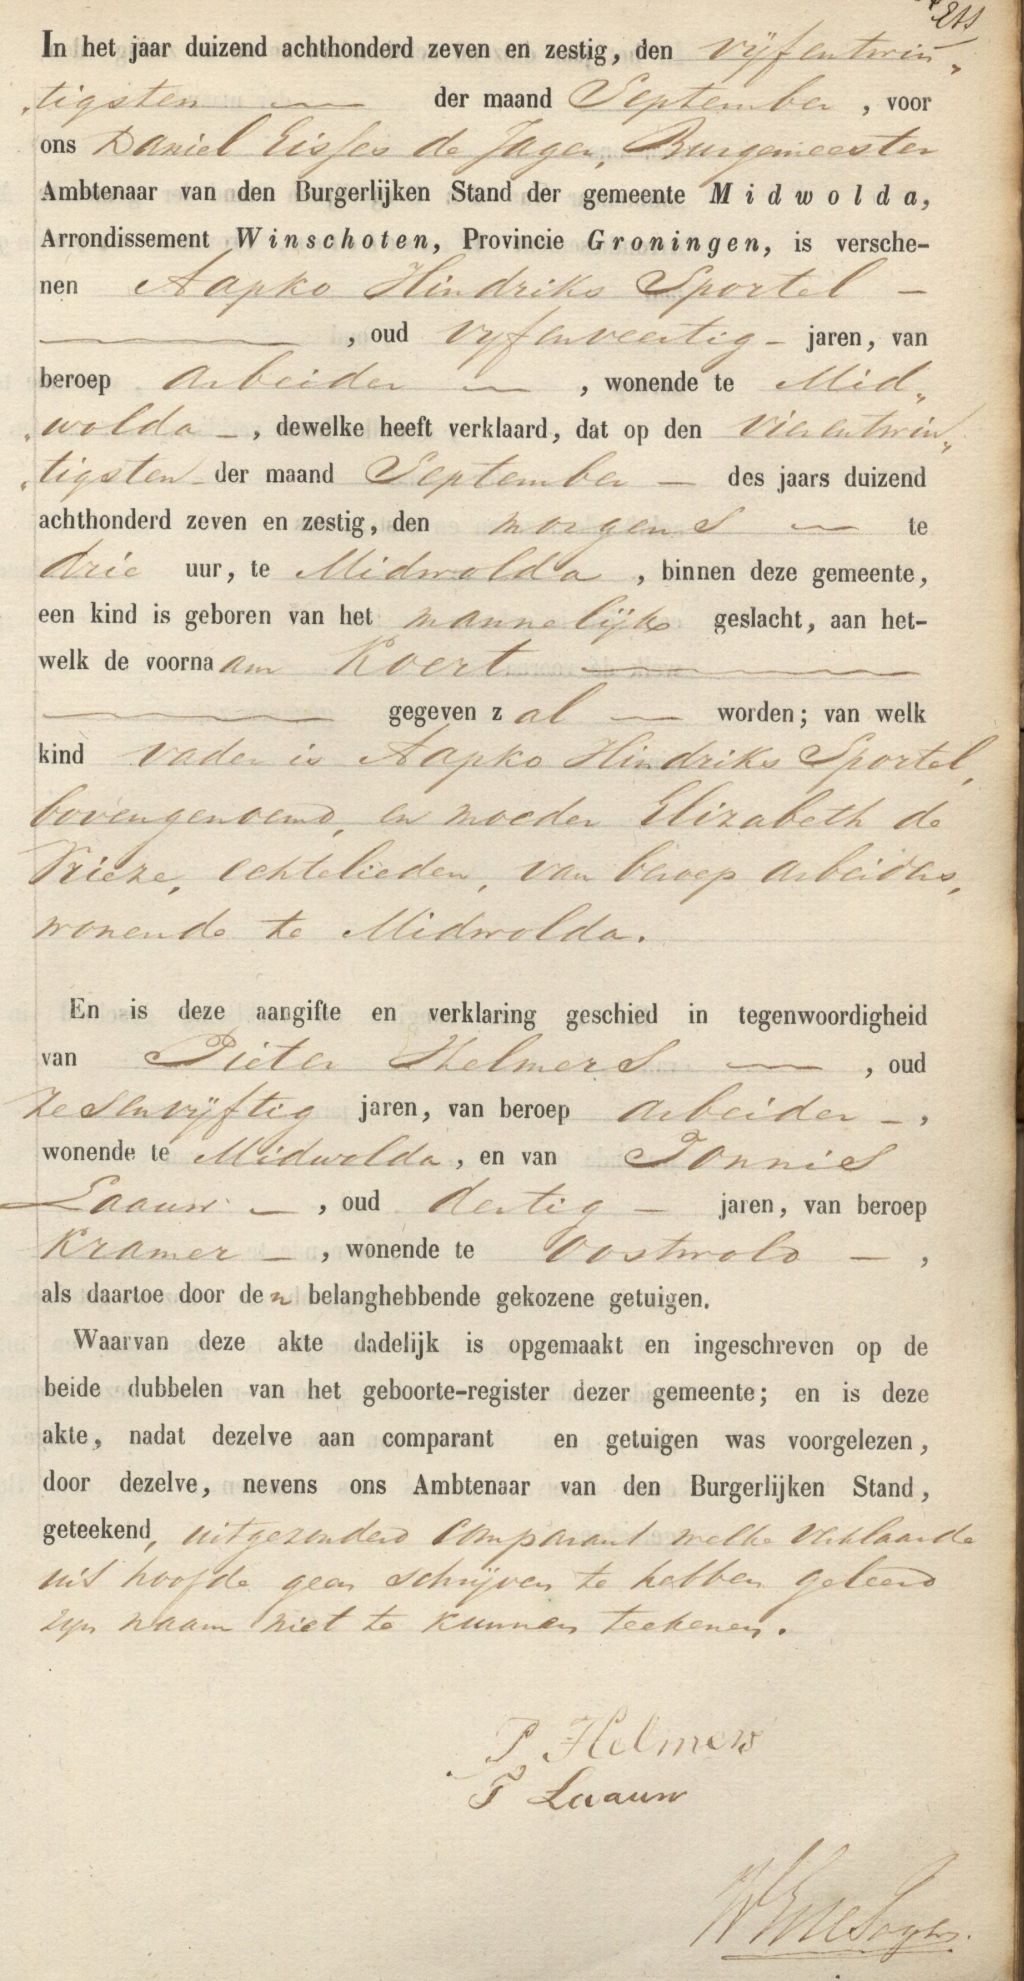 In het jaar duizend achthonderd zeven en zestig, den vijfentwin„
„tigsten — der maand September, voor
ons Daniel Eisses de Jager, Burgemeester
Ambtenaar van den Burgerlijken Stand der gemeente Midwolda,
Arrondissement Winschoten, Provincie Groningen, is versche-
nen Aapko Hindriks Sportel —
—, oud vijfenveertig — jaren, van
beroep arbeider —, wonende te Mid„
„wolda —, dewelke heeft verklaard, dat op den vierentwin„
„tigsten — der maand September — des jaars duizend
achthonderd zeven en zestig, den morgens — te
drie uur, te Midwolda, binnen deze gemeente,
een kind is geboren van het mannelijk geslacht, aan het-
welk de voornaam Koert —
— gegeven zal — worden; van welk
kind vader is Aapko Hindriks Sportel,
bovengenoemd, en moeder Elizabeth de
Vrieze, echtelieden, van beroep arbeiders,
wonende te Midwolda.
En is deze aangifte en verklaring geschied in tegenwoordigheid
van Pieter Helmers —, oud
zesenvijftig jaren, van beroep arbeider —,
wonende te Midwolda, en van Tonnies
Laauw —, oud dertig — jaren, van beroep
Kramer —, wonende te Oostwold —,
als daartoe door den belanghebbende gekozene getuigen.
Waarvan deze akte dadelijk is opgemaakt en ingeschreven op de
beide dubbelen van het geboorte-register dezer gemeente; en is deze
akte, nadat dezelve aan comparant en getuigen was voorgelezen,
door dezelve, nevens ons Ambtenaar van den Burgerlijken Stand,
geteekend, uitgezonderd Comparant welke verklaarde
uit hoofde geen schrijven te hebben geleerd
zijn naam niet te kunnen teekenen.
P Helmers
T Laauw